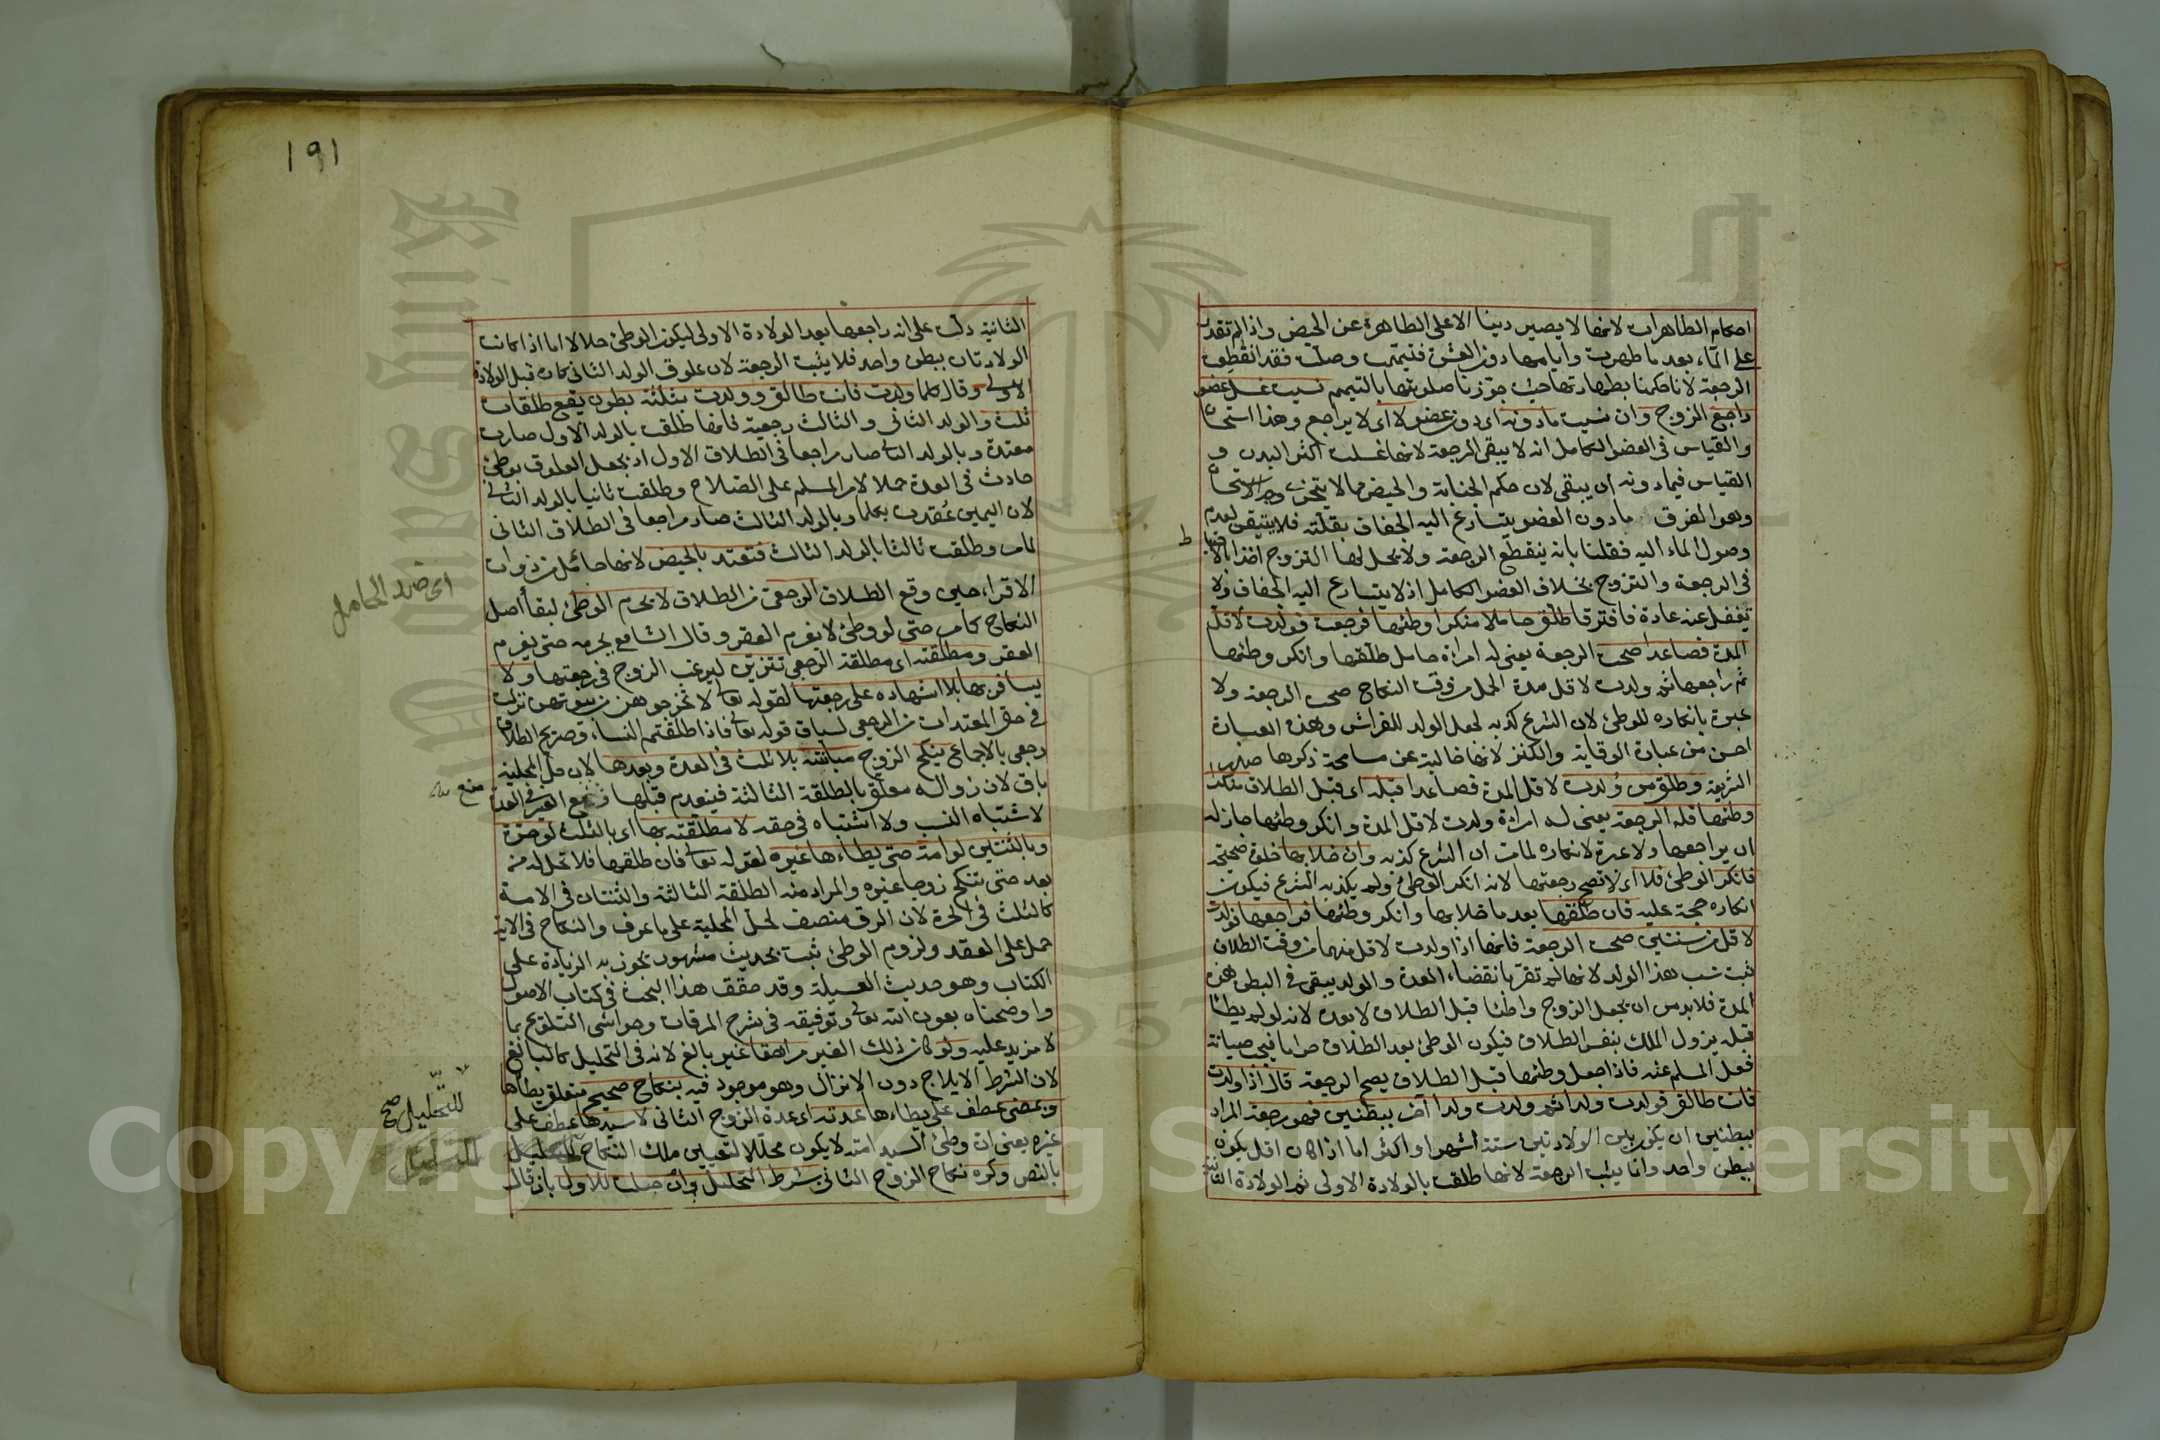 احكام الطاهرات لانها لا يصير دينا الا على الطاهرة عن الحيض واذا لم تقدر
على الماء بعد ما طهرت وايامها دون العشر فتيممت وصلت فقد انقطعت
الرجعة لانا حكمنا بطهارتها حيث جوزنا صلوتها بالتيمم نسيت غسل عضو
راجع الزوج وان نسيت ما دونه اى دون عضو لا اى لا يراجع وهذا استحسان
والقياس فى العضو الكامل انه لا يبقى الرجعة لانها غسلت اكثر البدن و
القياس فيما دونه ان يبقى لان حكم الجنابة والحيض مما لا يتجزى وجه الاستحسان
وهو الفرق ما دون العضو يتسارع اليه الجفاف بقلته فلا يتيقن بعدم
وصول الماء اليه فقلنا بانه ينقطع الرجعة ولا يحل لها التزوج اخذا بالاحتياط
فى الرجعة والتزوج بخلاف العضو الكامل اذ لا يتسارع اليه الجفاف ولا
تغفل عنه عادة فافترقا طلق حاملا منكرا وطئها فرجعت فولدت لاقل
المدة فصاعدا صحت الرجعة يعنى له امراة حامل طلقها وانكر وطئها
ثم راجعها ثم ولدت لاقل مدة الحمل من وقت النكاح صحت الرجعة ولا
عبرة بانكاره للوطئ لان الشرع كذبه لجعل الولد للفراش وهذه العبارة
احسن من عبارة الوقاية والكنز لانها خالية عن مسامحة ذكرها صدر
الشريعة وطلق من ولدت لاقل المدة فصاعدا قبله اى قبل الطلاق منكرا
وطئها فله الرجعة يعنى له امراة ولدت لاقل المدة وانكر وطئها جاز له
ان يراجعها ولا عبرة لانكاره لما مر ان الشرع كذبه وان خلا بها فطلق
فانكر الوطئ فلا اى لا تصح رجعتها لانه انكر الوطئ ولم يكذبه الشرع فيكون
انكاره حجة عليه فان طلقها بعد ما خلا بها وانكر وطئها فراجعها فولدت
لاقل من سنتين صحت الرجعة فانها اذا ولدت لاقل منهما من وقت الطلاق
ثبت نسب هذا الولد لانها لم تقر بانقضاء العدة والولد يبقى فى البطن هذه
المدة فلا بد من ان يجعل الزوج واطئا قبل الطلاق لا بعده لانه لو لم يطأ
قبله يزول الملك بنفس الطلاق فيكون الوطئ بعد الطلاق حراما فيجب صيانة
فعل المسلم عنه فاذا جعل وطئها قبل الطلاق يصح الرجعة قال اذا ولدت
فانت طالق فولدت ولدا ثم ولدت ولدا آخر ببطنين فهو رجعة المراد
ببطنين ان يكون بين الولادتين ستة اشهر او اكثر اما اذا كان اقل يكون
ببطن واحد وانما يثبت الرجعة لانها طلقت بالولادة الاولى ثم الولادة الثانية
١٩١
الثانية دلت على انه راجعها بعد الولادة الاولى ليكون الوطئ حلالا اما اذا كانت
الولادتان ببطن واحد فلا يثبت الرجعة لان علوق الولد الثانى كان قبل الولادة
الاولى وقال كلما ولدت فانت طالق وولدت بثلثة بطون يقع طلقات
ثلث والولد الثانى والثالث رجعية فانها طلقت بالولد الاول صارت
معتدة وبالولد الثانى صار مراجعا فى الطلاق الاول اذ يجعل العلوق بوطئ
حادث فى العدة حملا لامر المسلم على الصلاح وطلقت ثانيا بالولد الثانى
لان اليمين عقدت بكلما وبالولد الثالث صار مراجعا فى الطلاق الثانى
لما مر وطلقت ثالثا بالولد الثالث فتعتد بالحيض لانها حائل من ذوات
اى ضد الحامل
الاقراء حين وقع الطلاق الرجعى من الطلاق لا يحرم الوطئ لبقاء اصل
النكاح كما مر حتى لو وطئ لا يغرم العقر وقال الشافعى يحرمه حتى يغرم
العقر ومطلقته اى مطلقة الرجعى تتزين ليرغب الزوج فى رجعتها ولا
يسافر بها بلا اشهاده على رجعتها لقوله تعالى لا تخرجوهن من بيوتهن نزلت
فى حق المعتدات من الرجعى لسياق قوله تعالى فاذا طلقتم النساء وصريح الطلاق
رجعى بالاجماع ينكح الزوج مبانته بلا ثلث فى العدة وبعدها لان حل المحلية
باق لان زواله معلق بالطلقة الثالثة فينعدم قبلها ومنع الغير فى العدة
منع
لاشتباه النسب ولا اشتباه فى حقه لا مطلقته بها اى بالثلث لو حرة
وبالثنتين لو امة حتى يطاءها غيره لقوله تعالى فان طلقها فلا تحل له من
بعد حتى تنكح زوجا غيره والمراد منه الطلقة الثالثة والثنتان فى الامة
كالثلث فى الحرة لان الرق منصف لحل المحلية على ما عرف والنكاح فى الاية
حمل على العقد ولزوم الوطئ ثبت بحديث مشهور يجوز به الزيادة على
الكتاب وهو حديث العسيلة وقد حقق هذا البحث فى كتاب الاصول
واوضحناه بعون الله تعالى وتوفيقه فى شرح المرقاة وحواشى التلويح بما
لا مزيد عليه ولو كان ذلك الغير مراهقا غير بالغ لانه فى التحليل كالبالغ
لان الشرط الايلاج دون الانزال وهو موجود فيه بنكاح صحيح متعلق بيطأها
ويمضى عطف على يطاءها عدته اى عدة الزوج الثانى لا سيدها عطف على
للتحليل صح
غيره يعنى ان وطئ السيد امته لا يكون محللا لتعيين ملك النكاح
بالنص وكره نكاح الزوج الثانى بشرط التحليل وان حلت للاول بان قال
Copyright © King Saud University
King Saud University
1957